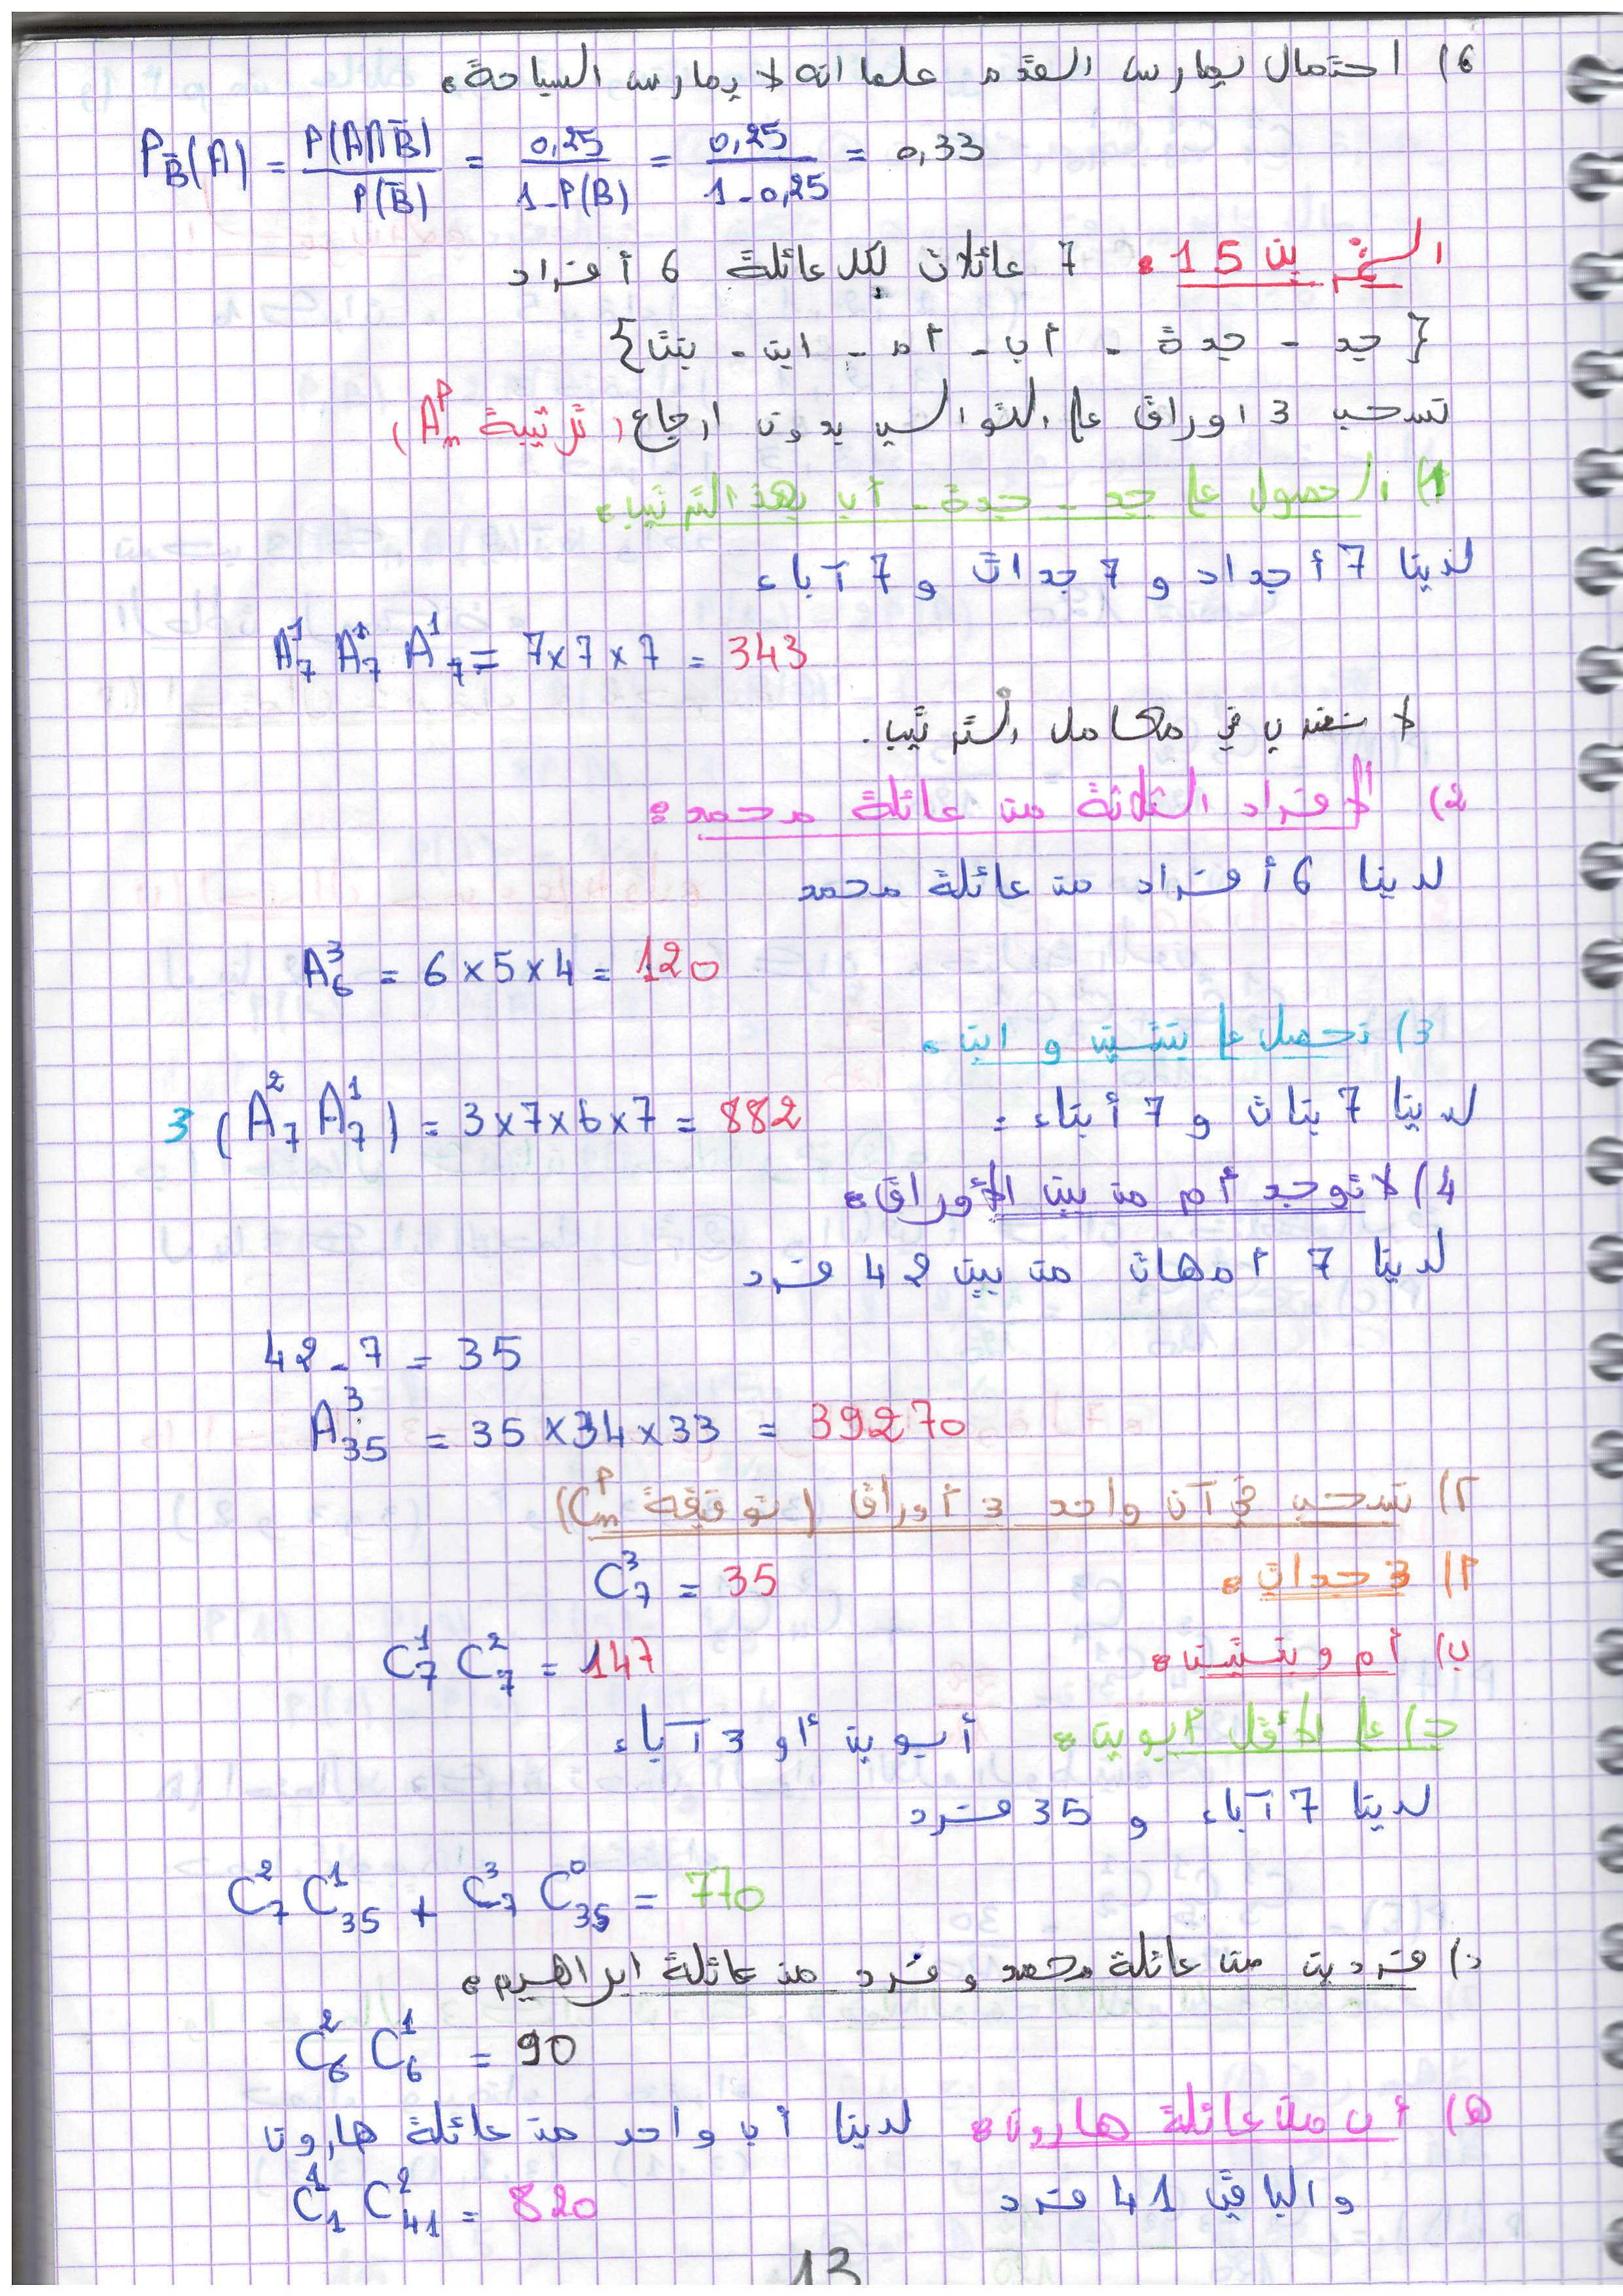 6) احتمال يمارس القدم علما انه لا يمارس السباحة:
P_B̄(A) = P(A∩B̄)/P(B̄) = 0,25/(1-P(B)) = 0,25/(1-0,25) = 0,33
التمرين 15: 7 عائلات لكل عائلة 6 أفراد
{جد - جدة - أب - أم - ابن - بنت}
نسحب 3 اوراق على التوالي بدون ارجاع (ترتيبة A_n^p)
1) الحصول على جد - جدة - أب بهذ الترتيب:
لدينا 7 أجداد و 7 جدات و 7 آباء
A_7^1 A_7^1 A_7^1 = 7×7×7 = 343
لا نضرب في معامل الترتيب.
2) الأفراد الثلاثة من عائلة محمد:
لدينا 6 أفراد من عائلة محمد
A_6^3 = 6×5×4 = 120
3) نحصل على بنتين و ابن:
لدينا 7 بنات و 7 أبناء:
3 (A_7^2 A_7^1) = 3×7×6×7 = 882
4) لا توجد أم من بين الأوراق:
لدينا 7 أمهات من بين 42 فرد
42-7 = 35
A_35^3 = 35×34×33 = 39270
2) نسحب في آن واحد 3 أوراق (توفيقة C_n^p)
أ) 3 جدات: C_7^3 = 35
ب) أم و بنتين: C_7^1 C_7^2 = 147
ج) على الأقل أبوين: أبوين أو 3 آباء
لدينا 7 آباء و 35 فرد
C_7^2 C_35^1 + C_7^3 C_35^0 = 770
د) فردين من عائلة محمد و فرد من عائلة ابراهيم:
C_6^2 C_6^1 = 90
ه) أب من عائلة هارون: لدينا أب واحد من عائلة هارون
والباقي 41 فرد
C_1^1 C_41^2 = 820
13